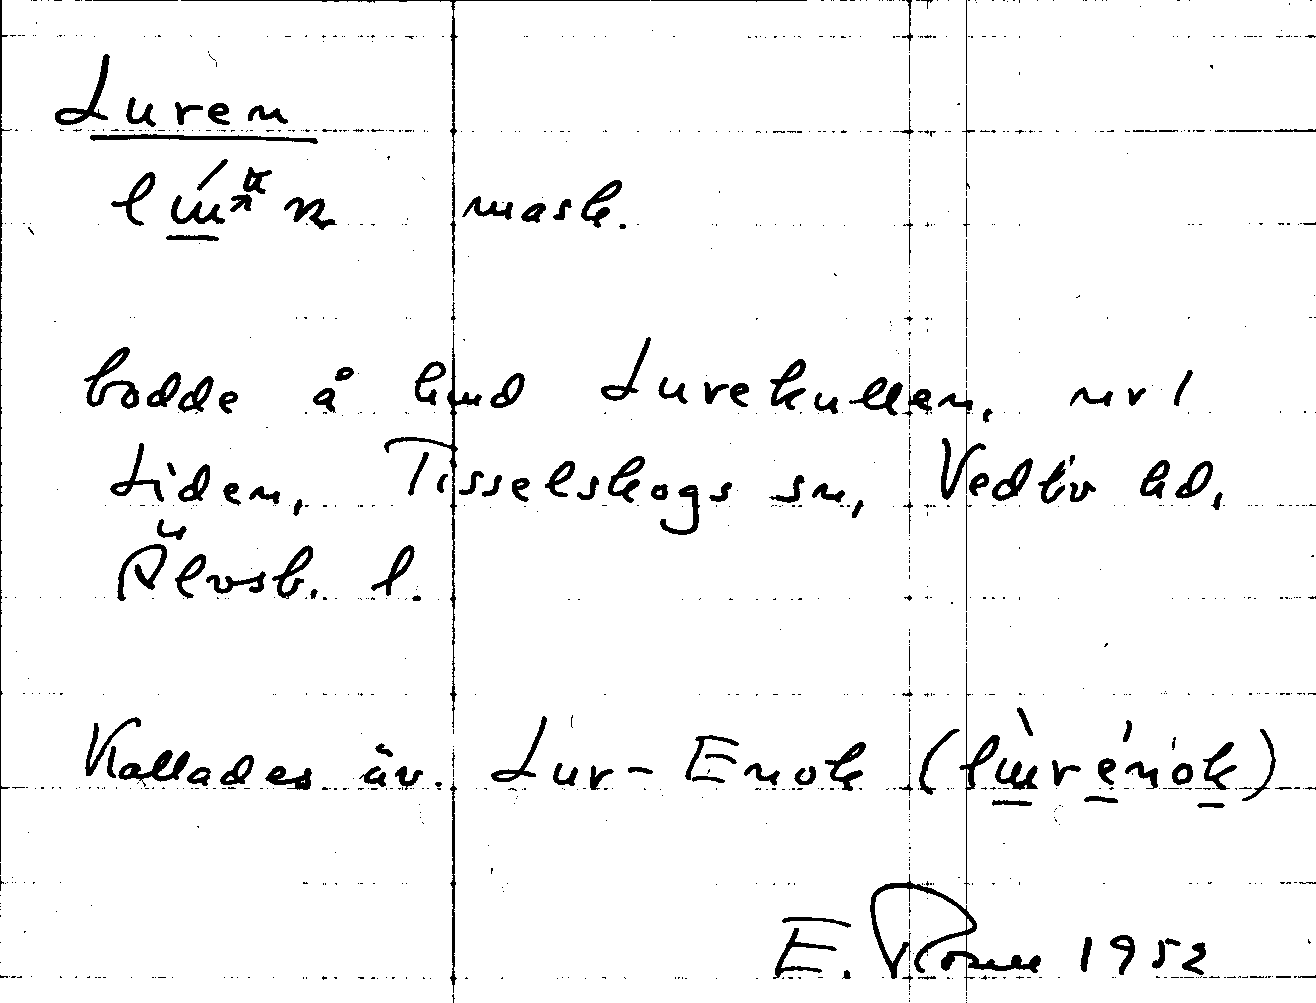 Luren
mask.
bodde å hmd Lurekullen, nr 1
Liden, Tisselskogs sn, Vedbo hd,
Älvsb. l.
Kallades äv. Lur-Enok
E. 1952